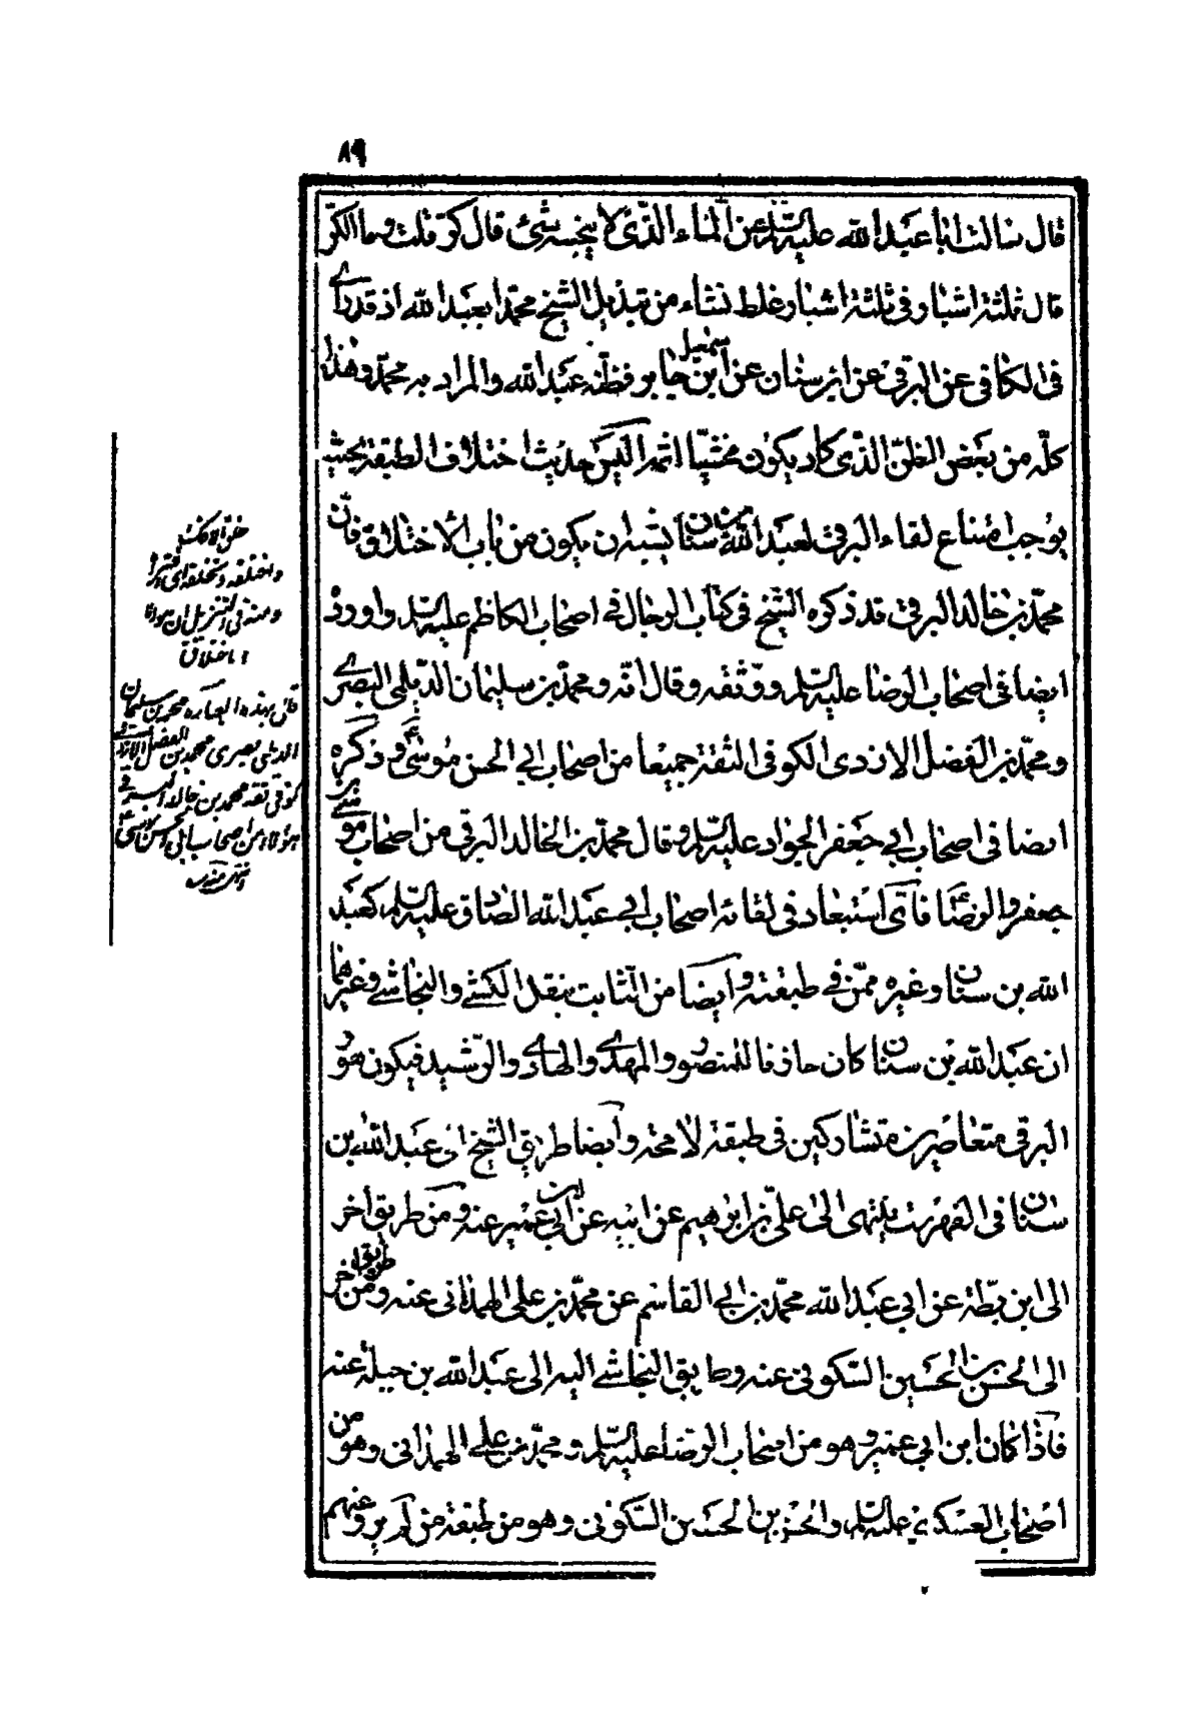 ٨٩
قال سالت ابا عبد الله عليه السلم عن الماء الذي لا ينجسه شئ قال كر قلت وما الكر
قال ثلثة اشبار في ثلثة اشبار وغلط نشاء من تبديل الشيخ محمدا بعبد الله اذ قد راى
في الكافى عن البرقي عن ابن سنان عن اسمعيل بن جابر فظنه عبد الله والمراد به محمد وهذا
كله من بعض الظن الذي كاد يكون اثما اليس حديث اختلاف الطبقة بحيث
يوجب امتناع لقاء البرقي لعبد الله بن سنان يشبه ان يكون من باب الاختلاق فان
محمد بن خالد البرقي قد ذكره الشيخ في كتاب الرجال في اصحاب الكاظم عليه السلم واورده
ايضا في اصحاب الرضا عليه السلم ووثقه وقال انه ومحمد بن سليمان الديلمي البصرى
ومحمد بن الفضل الازدى الكوفى الثقة جميعا من اصحاب ابي الحسن موسى ع وذكره
ايضا في اصحاب ابي جعفر الجواد عليه السلم وقال محمد بن الخالد البرقي من اصحاب موسى بن
جعفر والرضا ع فاي استبعاد في لقائه اصحاب ابي عبد الله الصادق عليه السلم كعبد
الله بن سنان وغيره ممن في طبقته وايضا من الثابت بنقل الكشي والنجاشي وغيرهما
ان عبد الله بن سنان كان خازنا للمنصور والمهدى والهادى والرشيد فيكون هو و
البرقي متعاصرين متشاركين في طبقة لا محة وايضا طريق الشيخ الى عبد الله بن
سنان في الفهرست ينتهى الى على بن ابرهيم عن ابيه عن ابن ابي عمير عنه ومن طريق اخر
الى ابن بطة عن ابي عبد الله محمد بن ابي القاسم عن محمد بن على الهمذانى عنه ومن طريق اخر
الى الحسن بن الحسين السكوني عنه وطريق النجاشي اليه الى عبد الله بن جبلة عنه
فاذا كان ابن ابي عمير وهو من اصحاب الرضا عليه السلم ومحمد بن على الهمذانى وهو من
اصحاب العسكرى عليه السلم والحسن بن الحسين السكوني وهو من طبقة من لم يرو عنهم
خلق الافك
واختلقه وتخلقه اي افتراه
ومنه في التنزيل ان هذا
الا اختلاق
قال بهذه العبارة محمد بن سليمان
الديلمى بصرى محمد بن الفضل الازدى
كوفى ثقة محمد بن خالد البرقي
هؤلاء من اصحاب ابي الحسن موسى ع